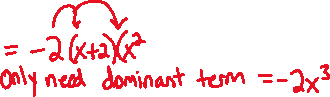 = -2(x+2)(x²
only need dominant term = -2x³